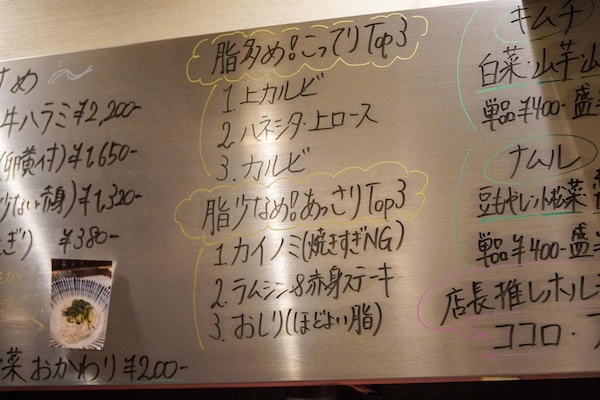 すめ
牛ハラミ ¥2,200-
(卵黄付) ¥1,650-
少ない赤身) ¥1,320-
ぎり) ¥380-
菜おかわり ¥200-
脂多め!こってりTop3
1. 上カルビ
2. ハネシタ・上ロース
3. カルビ
脂少なめ!あっさりTop3
1. カイノミ(焼きすぎNG)
2. ラムシン&赤身ステーキ
3. おしり(ほどよい脂)
キムチ
白菜・山芋・山
単品¥400-盛
ナムル
豆もやし・小松菜
単品¥400-盛
店長推しホルモ
ココロ・